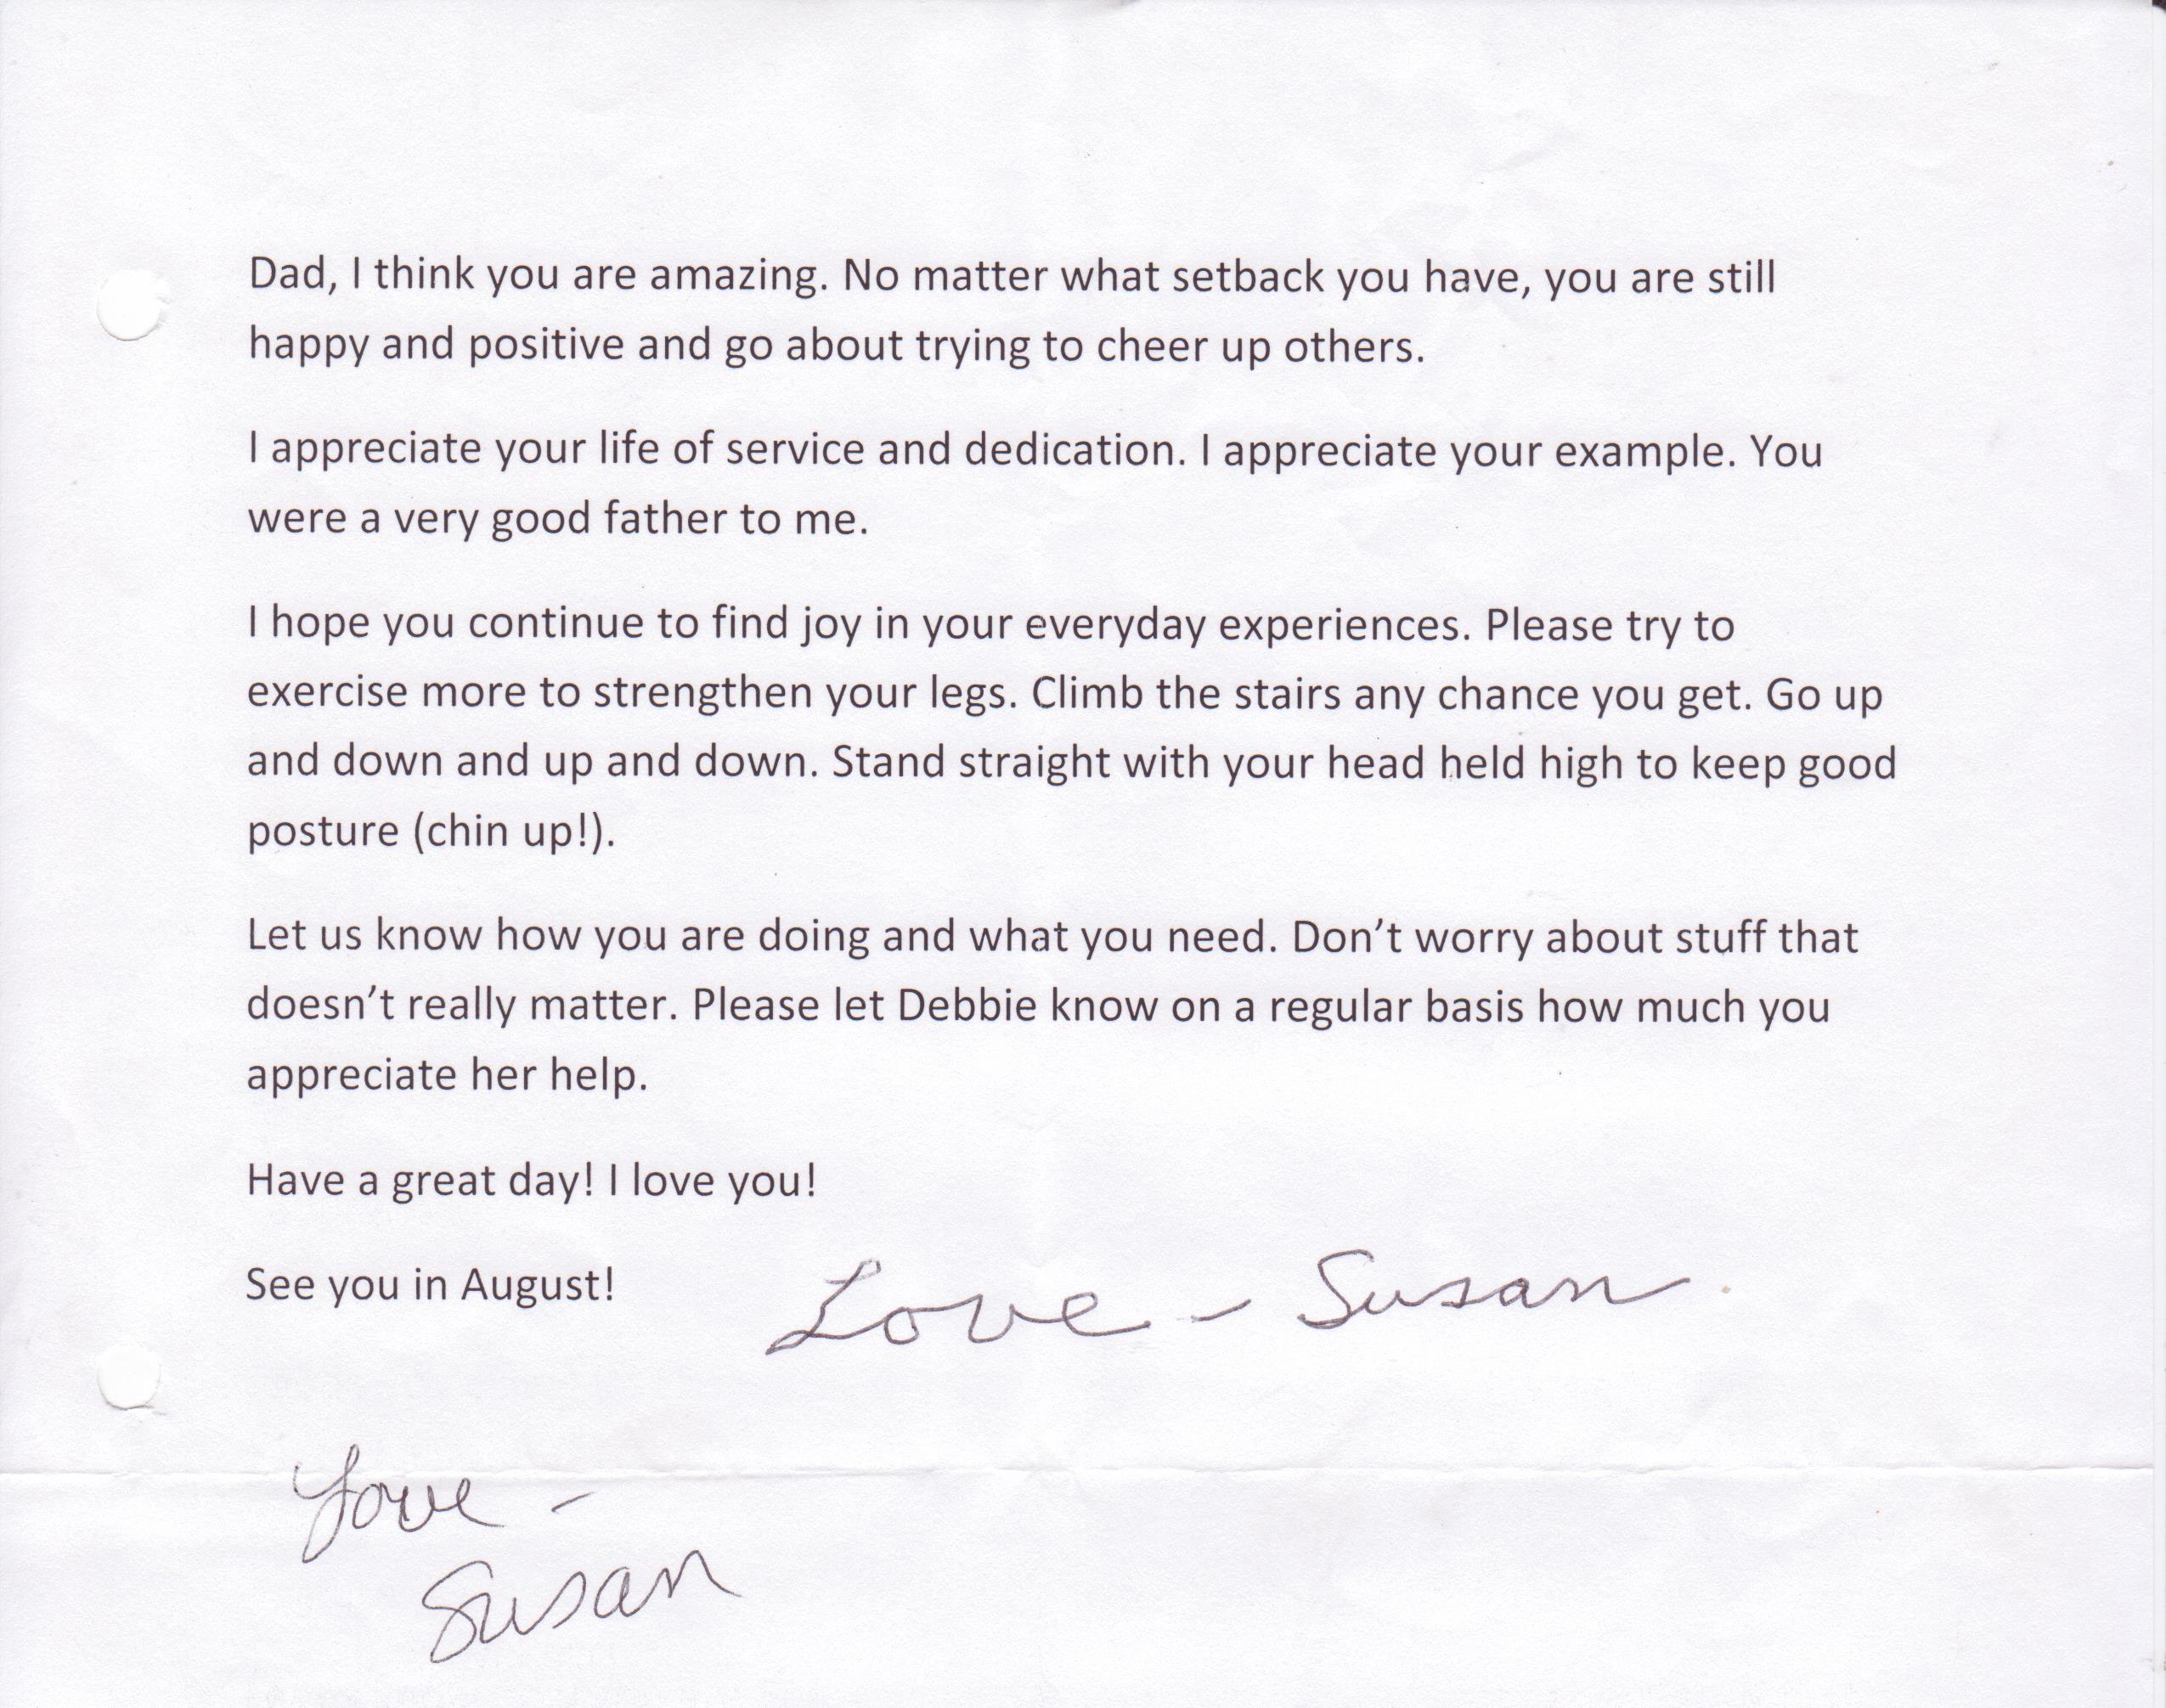 Dad, I think you are amazing. No matter what setback you have, you are still
happy and positive and go about trying to cheer up others.
I appreciate your life of service and dedication. I appreciate your example. You
were a very good father to me.
I hope you continue to find joy in your everyday experiences. Please try to
exercise more to strengthen your legs. Climb the stairs any chance you get. Go up
and down and up and down. Stand straight with your head held high to keep good
posture (chin up!).
Let us know how you are doing and what you need. Don’t worry about stuff that
doesn’t really matter. Please let Debbie know on a regular basis how much you
appreciate her help.
Have a great day! I love you!
See you in August! Love - Susan
Love -
Susan